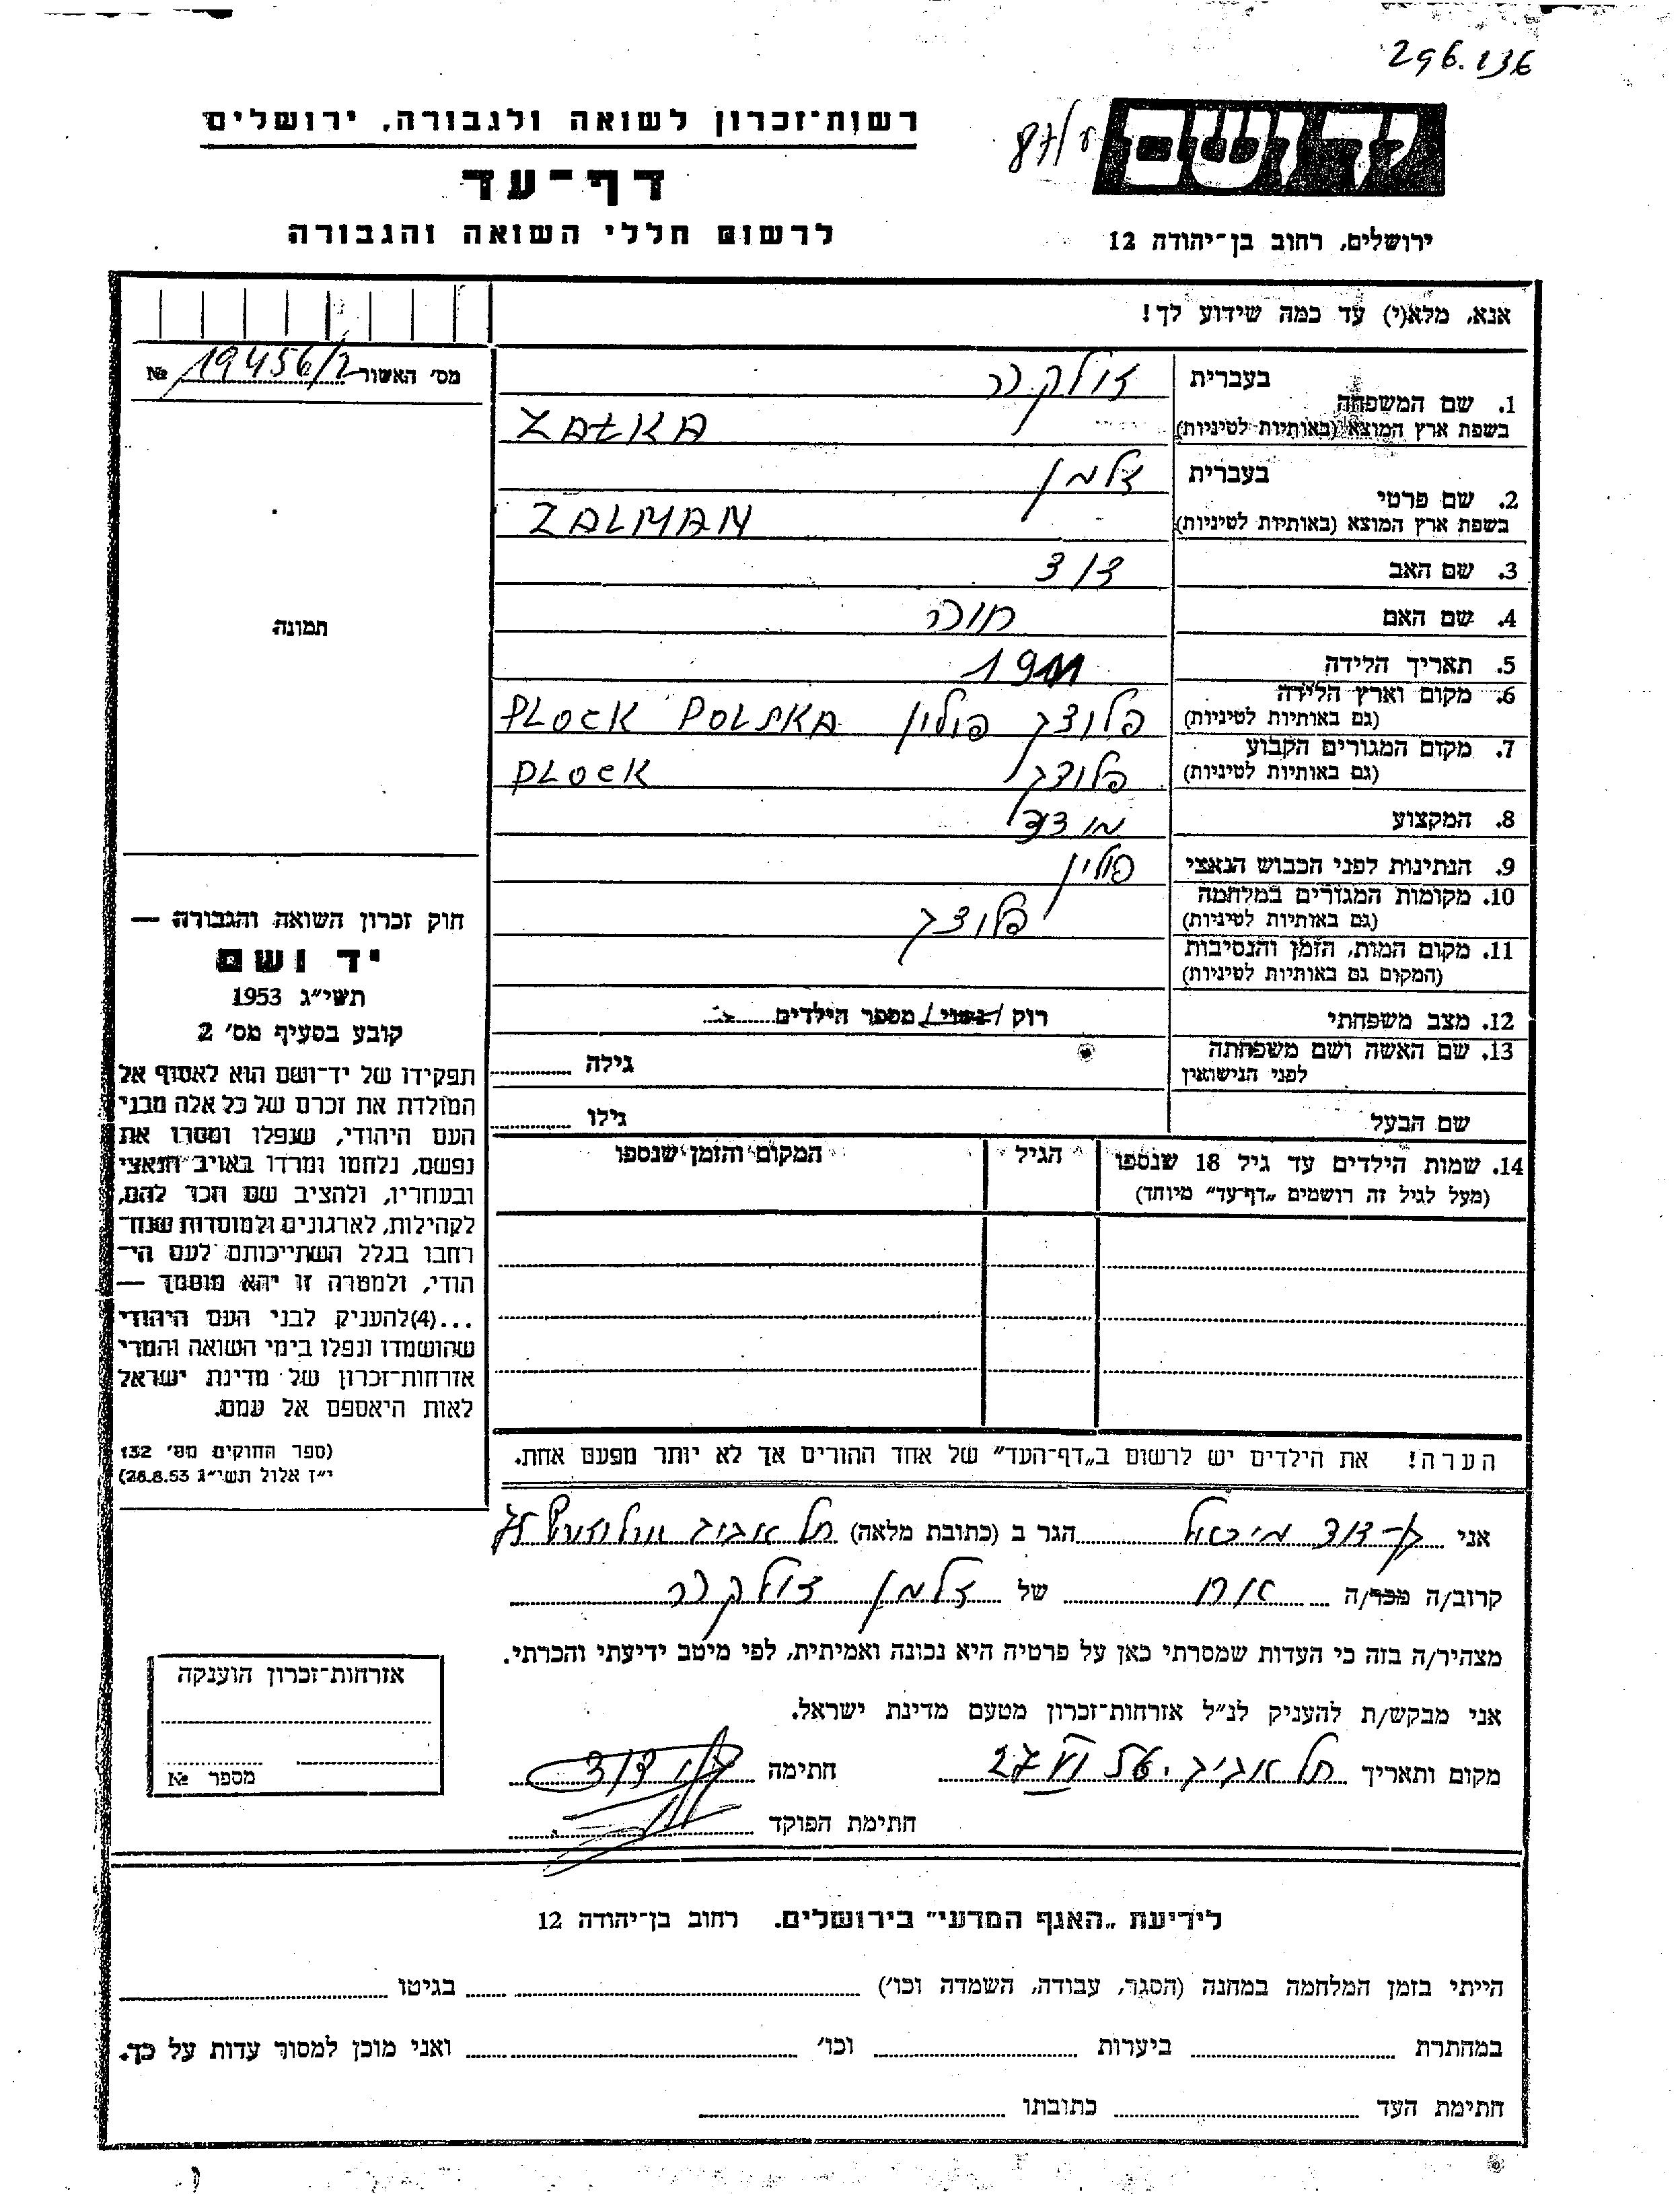 296.136
יד ושם
רשות־זכרון לשואה ולגבורה, ירושלים
דף־עד
לרשום חללי השואה והגבורה
ירושלים, רחוב בן־יהודה 12
אנא, מלא(י) עד כמה שידוע לך!
מס' האשור 19456/2 №
1. שם המשפחה בעברית זולקה
בשפת ארץ המוצא (באותיות לטיניות) ZAŁKA
2. שם פרטי בעברית זלמן
בשפת ארץ המוצא (באותיות לטיניות) ZALMAN
3. שם האב דוד
4. שם האם חוה
5. תאריך הלידה 1911
6. מקום וארץ הלידה (גם באותיות לטיניות) פלוצק פולין PLOCK POLSKA
7. מקום המגורים הקבוע (גם באותיות לטיניות) פלוצק PLOCK
8. המקצוע
9. הנתינות לפני הכבוש הנאצי פולין
10. מקומות המגורים במלחמה (גם באותיות לטיניות) פלוצק
11. מקום המות, הזמן והנסיבות (המקום גם באותיות לטיניות)
12. מצב משפחתי רוק / נשוי / מספר הילדים
13. שם האשה ושם משפחתה לפני הנישואין גילה
שם הבעל גילו
14. שמות הילדים עד גיל 18 שנספו הגיל המקום והזמן שנספו
(מעל לגיל זה רושמים „דף־עד” מיוחד)
הערה! את הילדים יש לרשום ב„דף־העד” של אחד ההורים אך לא יותר מפעם אחת.
תמונה
חוק זכרון השואה והגבורה —
יד ושם
תשי״ג 1953
קובע בסעיף מס' 2
תפקידו של יד־ושם הוא לאסוף אל
המולדת את זכרם של כל אלה מבני
העם היהודי, שנפלו ומסרו את
נפשם, נלחמו ומרדו באויב הנאצי
ובעוזריו, ולהציב שם וזכר להם,
לקהילות, לארגונים ולמוסדות שנח־
רבו בגלל השתייכותם לעם הי־
הודי, ולמטרה זו יהא מוסמך —
...(4)להעניק לבני העם היהודי
שהושמדו ונפלו בימי השואה והמרי
אזרחות־זכרון של מדינת ישראל
לאות היאספם אל עמם.
(ספר החוקים מס' 132
י״ז אלול תשי״ג 28.8.53)
אני בן־דוד מיכאל הגר ב (כתובת מלאה) תל אביב
קרוב/ה מכר/ה אח של זלמן זולקה
מצהיר/ה בזה כי העדות שמסרתי כאן על פרטיה היא נכונה ואמיתית, לפי מיטב ידיעתי והכרתי.
אני מבקש/ת להעניק לנ״ל אזרחות־זכרון מטעם מדינת ישראל.
מקום ותאריך תל אביב 27 VI 56 חתימה בן דוד
חתימת הפוקד
אזרחות־זכרון הוענקה
מספר №
לידיעת „האגף המדעי” בירושלים. רחוב בן־יהודה 12
הייתי בזמן המלחמה במחנה (הסגר, עבודה, השמדה וכו') בגיטו
במחתרת ביערות וכו' ואני מוכן למסור עדות על כך.
חתימת העד כתובתו